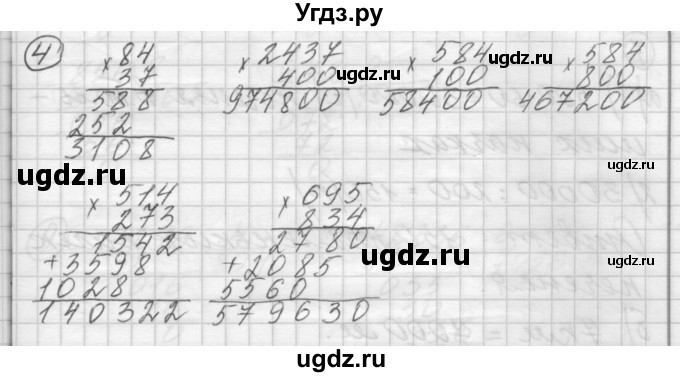 Угдз.ру
4
× 84
37
588
252
3108
× 2437
400
974800
× 584
100
58400
× 584
800
467200
ugdz.ru
ugdz.ru
ugdz.ru
× 514
273
1542
+ 3598
1028
140322
× 695
834
2780
+ 2085
5560
579630
ugdz.ru
ugdz.ru
ugdz.ru